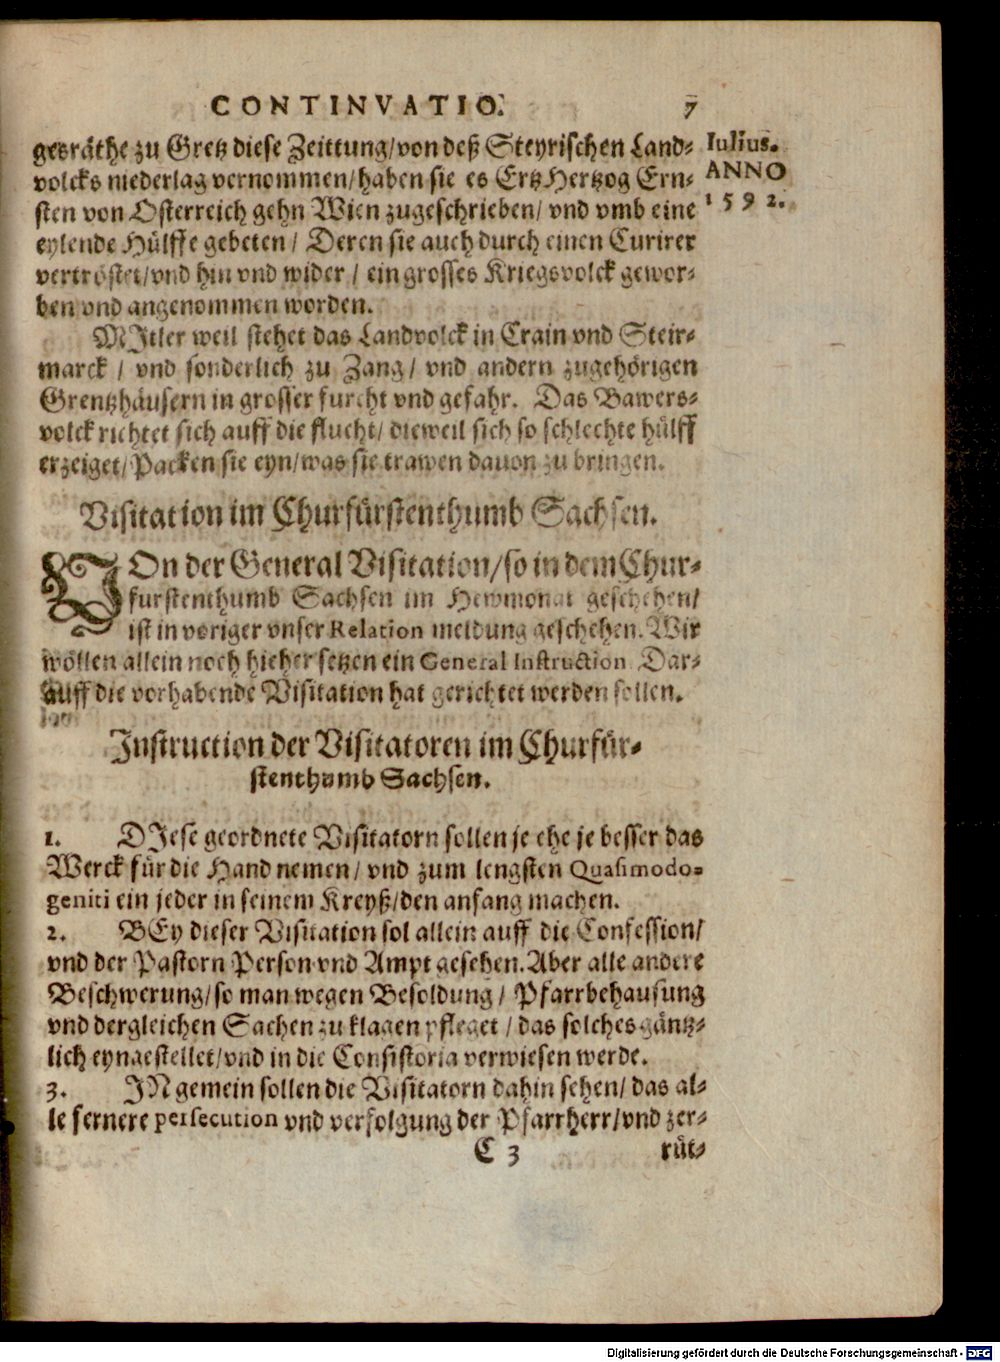 CONTINVATIO. 7
gesräthe zu Gretz diese Zeittung/von deß Steyrischen Land-
Iulius.
volcks niederlag vernommen/haben sie es ErtzHertzog Ern-
ANNO
sten von Osterreich gehn Wien zugeschrieben/ vnd vmb eine
1592.
eylende Hülffe gebeten/ Deren sie auch durch einen Curirer
vertröstet/vnd hin vnd wider / ein grosses Kriegsvolck gewor-
ben vnd angenommen worden.
MItler weil stehet das Landvolck in Crain vnd Steir-
marck / vnd sonderlich zu Zang/ vnd andern zugehörigen
Grentzhäusern in grosser furcht vnd gefahr. Das Bawers-
volck richtet sich auff die flucht/ dieweil sich so schlechte hülff
erzeiget/Packen sie eyn/was sie trawen dauon zu bringen.
Visitation im Churfürstenthumb Sachsen.
VOn der General Visitation/so in dem Chur-
furstenthumb Sachsen im Hewmonat geschehen/
ist in voriger vnser Relation meldung geschehen. Wir
wöllen allein noch hieher setzen ein General Instruction Dar-
auff die vorhabende Visitation hat gerichtet werden sollen.
Instruction der Visitatoren im Churfür-
stenthumb Sachsen.
1. DIese geordnete Visitatorn sollen je ehe je besser das
Werck für die Hand nemen/ vnd zum lengsten Quasimodo-
geniti ein jeder in seinem Kreyß/den anfang machen.
2. BEy dieser Visitation sol allein auff die Confession/
vnd der Pastorn Person vnd Ampt gesehen. Aber alle andere
Beschwerung/so man wegen Besoldung/ Pfarrbehausung
vnd dergleichen Sachen zu klagen pfleget / das solches gäntz-
lich eyngestellet/vnd in die Consistoria verwiesen werde.
3. IN gemein sollen die Visitatorn dahin sehen/ das al-
le fernere persecution vnd verfolgung der Pfarrherr/vnd zer-
C 3 rüt-
Digitalisierung gefördert durch die Deutsche Forschungsgemeinschaft - DFG